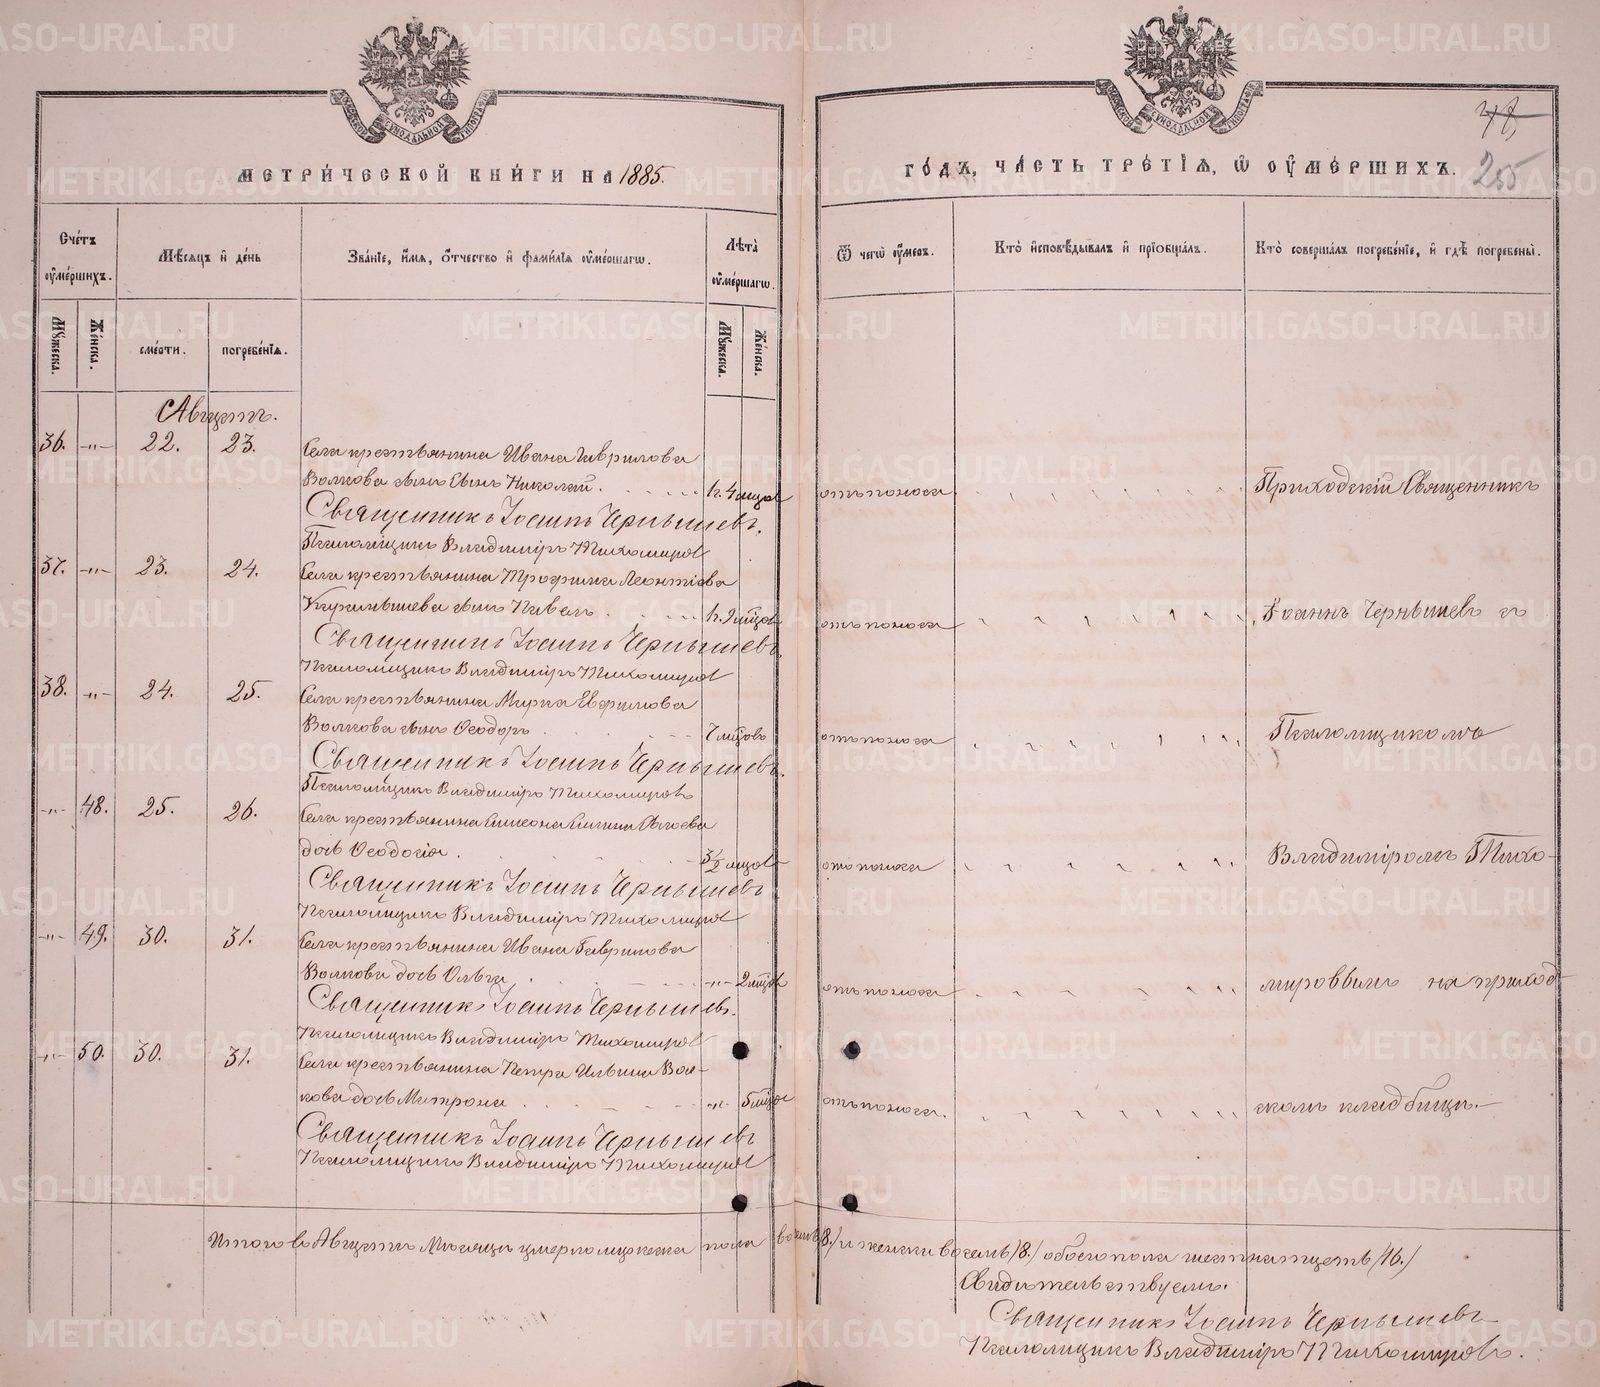 МЕТРИЧЕСКОЙ КНИГИ НА 1885.
Счетъ оумершихъ.
Мѣсяцъ и день
Званіе, имя, отчество и фамилія оумершагѡ.
Лѣта оумершагѡ.
Мужеска. Женска.
смерти. погребенія.
Мужеска. Женска.
Августъ.
36. -„- 22. 23. Села крестьянина Ивана Гаврилова
Волкова сынъ Николай. 4 мцовъ
Священникъ Іоаннъ Чернышевъ.
Псаломщикъ Владиміръ Тихомировъ
37. -„- 23. 24. Села крестьянина Трофима Леонтіева
сынъ Павелъ. 9 мцовъ
Священникъ Іоаннъ Чернышевъ.
Псаломщикъ Владиміръ Тихомировъ
38. -„- 24. 25. Села крестьянина Марка Евфимова
Волкова сынъ Ѳеодоръ 7 мцовъ
Священникъ Іоаннъ Чернышевъ.
Псаломщикъ Владиміръ Тихомировъ
-„- 48. 25. 26. Села крестьянина Симеона
дочь Ѳеодосія. 3½ мцовъ
Священникъ Іоаннъ Чернышевъ
Псаломщикъ Владиміръ Тихомировъ
-„- 49. 30. 31. Села крестьянина Ивана Гаврилова
Волкова дочь Ольга -„- 2 мцовъ
Священникъ Іоаннъ Чернышевъ.
Псаломщикъ Владиміръ Тихомировъ
-„- 50. 30. 31. Села крестьянина Петра Ильина Вол-
кова дочь Матрона -„- 5 мцовъ
Священникъ Іоаннъ Чернышевъ
Псаломщикъ Владиміръ Тихомировъ
Итого въ Августѣ Мѣсяцѣ умерло мужеска пола восемь /8./ и женска восемь /8./ обоего пола шестнатцеть /16./
Свидѣтельствуемъ.
Священникъ Іоаннъ Чернышевъ
Псаломщикъ Владиміръ Тихомировъ.
ГОДЪ, ЧАСТЬ ТРЕТІѦ, Ѡ ОУМЕРШИХЪ.
255
Ѿ чегѡ оумеръ.
Кто исповѣдывалъ и пріобщалъ.
Кто совершалъ погребеніе, и гдѣ погребены.
отъ поноса Приходскій Священникъ
отъ поноса Іоаннъ Чернышевъ съ
отъ поноса Псаломщикомъ
отъ поноса Владиміромъ Тихо-
отъ поноса мировымъ на приход-
отъ поноса. скомъ кладбищѣ.
METRIKI.GASO-URAL.RU